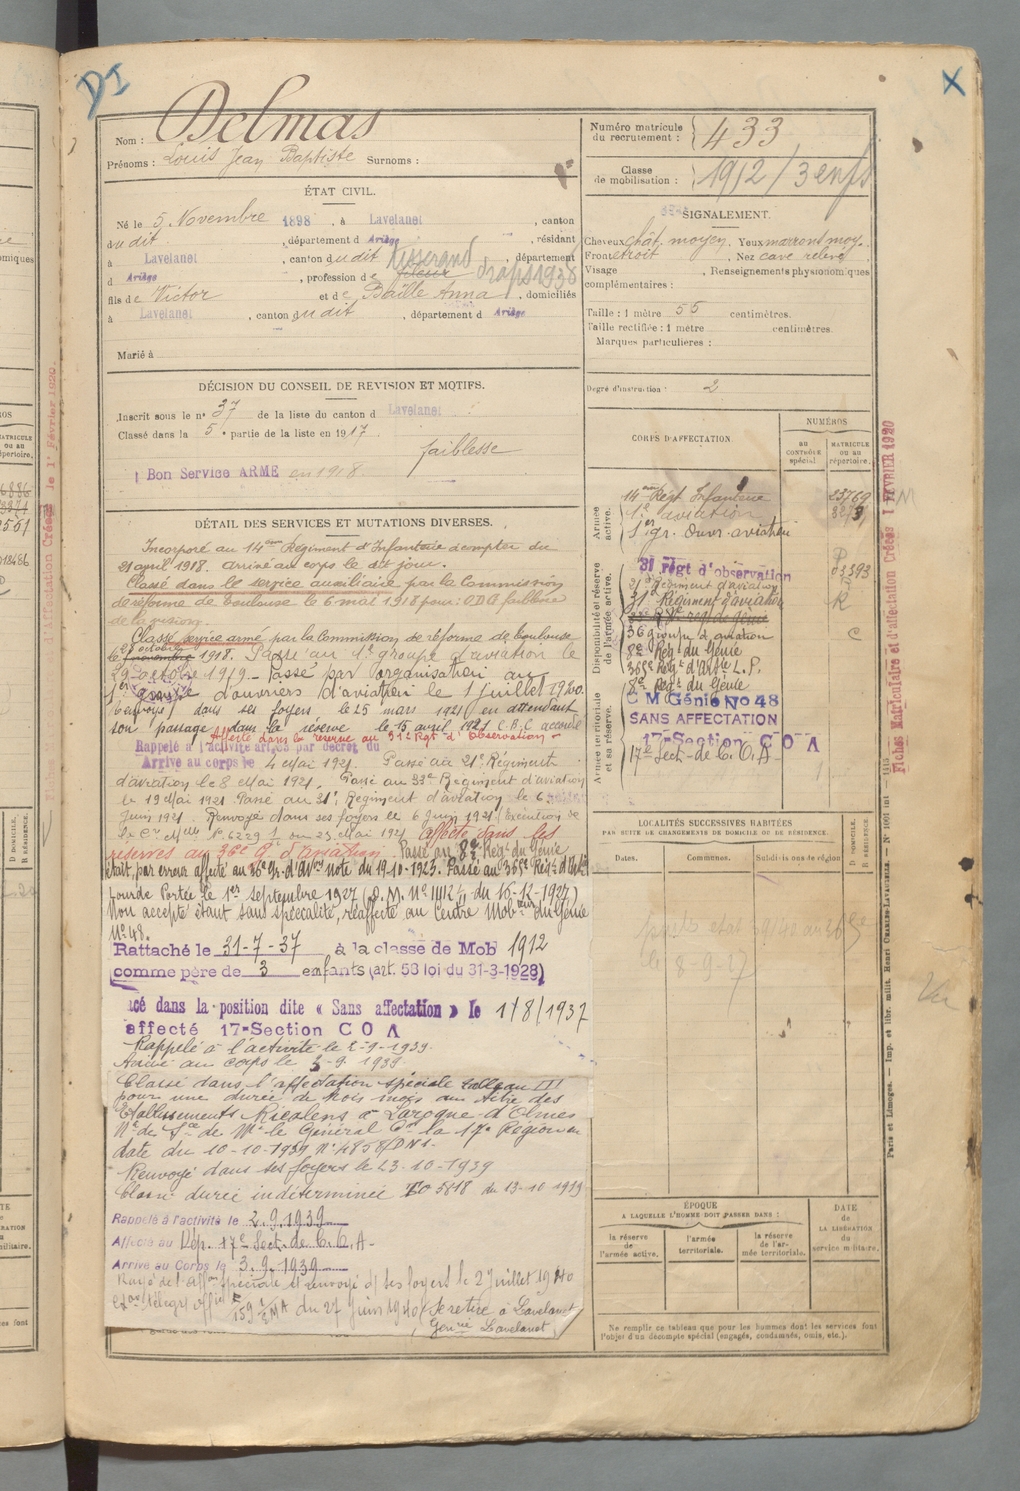 DI
X
Nom : Delmas
Prénoms : Louis Jean Baptiste Surnoms :
Numéro matricule du recrutement : 433
Classe de mobilisation : 1912 / 3 enfts
ÉTAT CIVIL.
Né le 5 Novembre 1898, à Lavelanet, canton
dudit, département d Ariège, résidant
à Lavelanet, canton dudit, département
d Ariège, profession de fileur tisserand draps 1938
fils de Victor et de Baille Anna, domiciliés
à Lavelanet, canton dudit, département d Ariège
Marié à
SIGNALEMENT.
Cheveux chât. moyen, Yeux marrons moy.
Front étroit, Nez cave relevé
Visage, Renseignements physionomiques
complémentaires :
Taille : 1 mètre 55 centimètres.
Taille rectifiée : 1 mètre centimètres.
Marques particulières :
Degré d'instruction : 2
DÉCISION DU CONSEIL DE REVISION ET MOTIFS.
Inscrit sous le n° 37 de la liste du canton d Lavelanet
Classé dans la 5e partie de la liste en 1917
faiblesse
Bon Service ARMÉ en 1918
DÉTAIL DES SERVICES ET MUTATIONS DIVERSES.
Incorporé au 14ème Régiment d'Infanterie à compter du
21 april 1918. arrivé au corps le dit jour.
Classé dans le service auxiliaire par la Commission
de réforme de Toulouse le 6 mai 1918 pour : ODG faiblesse
de la vision.
Classé service armé par la Commission de réforme de Toulouse
le 29 octobre 1918. Passé au 1er groupe d'aviation le
29 octobre 1919. Passé par organisation au
1er groupe d'ouvriers d'aviation le 1 juillet 1920.
Renvoyé dans ses foyers le 25 mars 1921 en attendant
son passage dans la réserve le 15 avril 1921 C.B.C. accordé
Affecté dans la réserve au 31e Régt d'Observation
Rappelé à l'activité art. 33 par décret du
Arrivé au corps le 4 mai 1921. Passé au 21e Régiment
d'aviation le 8 Mai 1921. Passé au 33e Régiment d'aviation
le 19 Mai 1921 Passé au 31e Régiment d'aviation le 6
Juin 1921. Renvoyé dans ses foyers le 6 juin 1921 (Exécution de
la Cre Mlle N° 6229 1/ du 23 Mai 1921 affecté dans les
réserves au 36e Gr d'aviation. Passé au 8e Régt du Génie
était par erreur affecté au 36e Gr. d'Avion note du 19-10-1923. Passé au 365e Régt d'Artie
Lourde Portée le 1er septembre 1927 (D.M. N° 11112 du 16-12-1927)
Non accepté étant sans spécialité, réaffecté au Centre Mobteur du Génie
N° 48.
Rattaché le 31-7-37 à la classe de Mob 1912
comme père de 3 enfants (art. 58 loi du 31-3-1928)
acé dans la position dite « Sans affectation » le 1/8/1937
affecté 17e Section C O A
Rappelé à l'activité le 2-9-1939.
Arrivé au corps le 3-9-1939
Classé dans l'affectation spéciale tableau III
pour une durée de trois mois au titre des
Etablissements Ricalens à Laroque d'Olmes
Nte de Sce de Mr le Général Ct la 17e Région en
date du 10-10-1939 N° 4858/DN1.
Renvoyé dans ses foyers le 23-10-1939
Classé durée indéterminée TO 5818 du 13-10 1939
Rappelé à l'activité le 2.9.1939
Affecté au Dép. 17e Sect. de C.O.A-
Arrivé au Corps le 3.9.1939
Rayé de l'Affon spéciale et renvoyé ds ses foyers le 2 juillet 1940
159 du 27 juin 1940 (Se retire à Lavelanet
Genie Lavelanet
CORPS D'AFFECTATION
NUMÉROS
au contrôle spécial.
MATRICULE ou au répertoire.
Armée active.
14ème Régt Infanterie 23769
1er aviation
1er gr. Ouvr. aviation
Disponibilité et réserve de l'armée active.
31 régt d'observation
31e Régiment d'aviation 03393
31e Régiment d'aviation R
36 groupe d'aviation C
8e Rég du Génie
365e Régt d'Artie L.P.
8e Régt du Génie
Armée territoriale et sa réserve.
C M Génie No 48
SANS AFFECTATION
17e Section C O A
17e Sect. de C.O.A-
LOCALITÉS SUCCESSIVES HABITÉES
PAR SUITE DE CHANGEMENTS DE DOMICILE OU DE RÉSIDENCE.
Dates. Communes. Subdivisions de région
D DOMICILE. R RÉSIDENCE.
le 8-9-27
ÉPOQUE
A LAQUELLE L'HOMME DOIT PASSER DANS :
la réserve de l'armée active.
l'armée territoriale.
la réserve de l'armée territoriale.
DATE de LA LIBÉRATION du service militaire.
Ne remplir ce tableau que pour les hommes dont les services font
l'objet d'un décompte spécial (engagés, condamnés, omis, etc.).
Fiches Matriculaire et d'affectation Créées 1 FÉVRIER 1920
Paris et Limoges. — Imp. et libr. milit. Henri CHARLES-LAVAUZELLE. — N° 1001 int
Vu
d'Affectation Créées le 1er Février 1920.